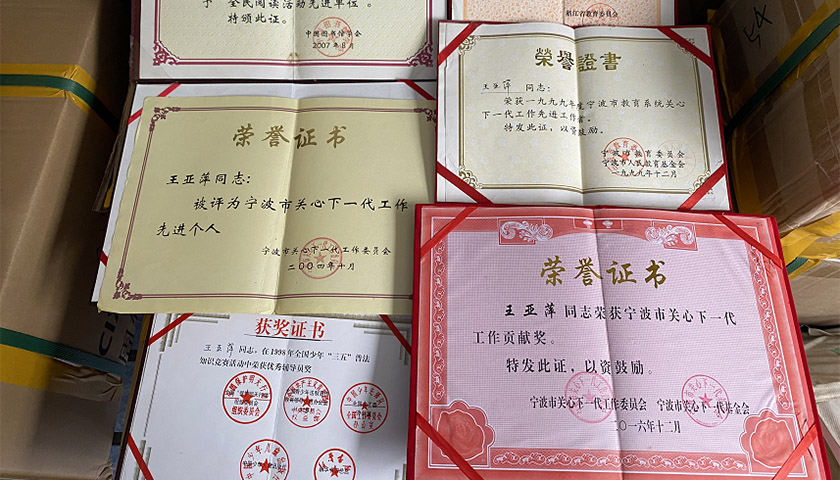 全民阅读活动先进单位。
特颁此证。
中国图书馆学会
2007年8月
浙江省教育委员会
荣誉证书
王亚萍同志:
被评为宁波市关心下一代工作
先进个人
宁波市关心下一代工作委员会
二00四年十月
榮譽證書
王亚萍 同志:
荣获一九九九年度宁波市教育系统关心
下一代工作先进工作者。
特发此证,以资鼓励。
宁波市教育委员会
宁波市人民教育基金会
一九九九年十二月
获奖证书
王亚萍 同志,在1998年全国少年“三五”普法
知识竞赛活动中荣获优秀辅导员奖
组织委员会
办公室
荣誉证书
王亚萍 同志荣获宁波市关心下一代
工作贡献奖。
特发此证,以资鼓励。
宁波市关心下一代工作委员会 宁波市关心下一代基金会
二〇一六年十二月